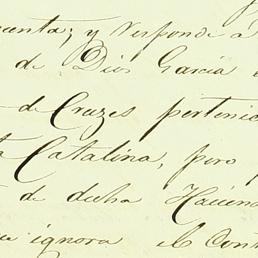 cuenta; y responde á
de Dios Garcia
de Cruzes pertenic
Catalina, pero
de dicha Hacien
ignora el Cont